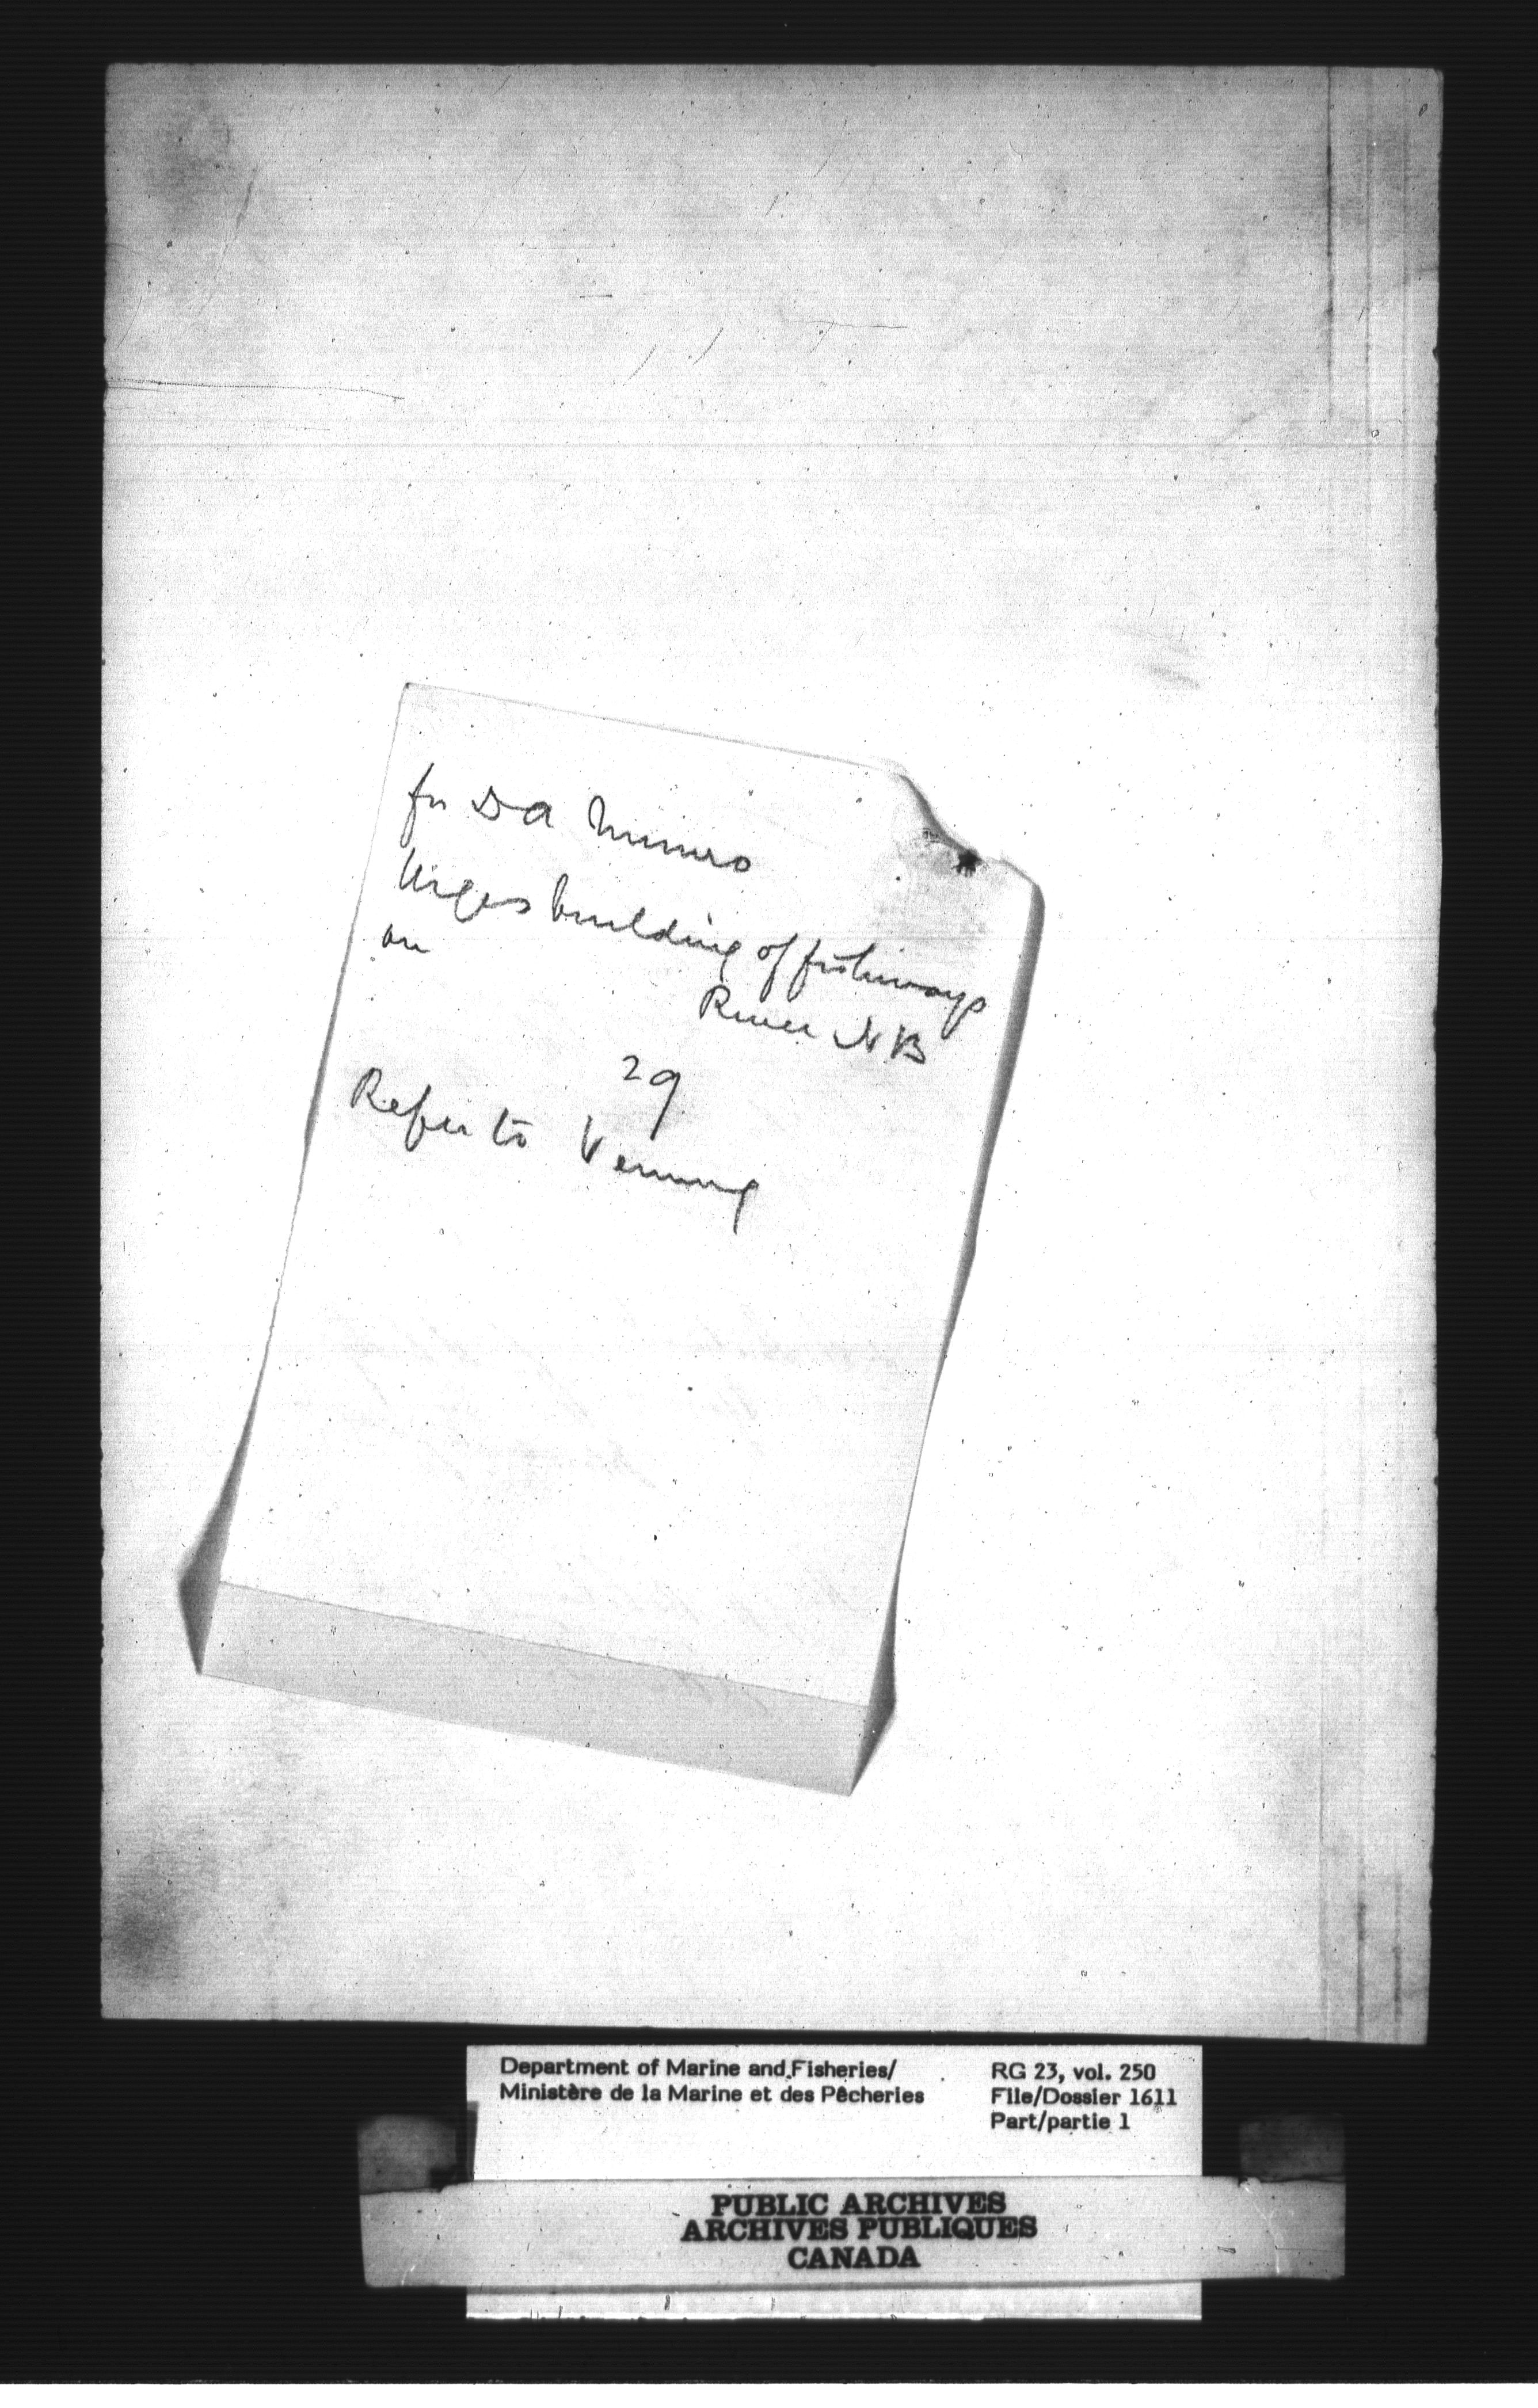 for D A Munro
Urges building of fishways
on
River N B
29
Refer to Venning
Department of Marine and Fisheries/
Ministère de la Marine et des Pêcheries
RG 23, vol. 250
File/Dossier 1611
Part/partie 1
PUBLIC ARCHIVES
ARCHIVES PUBLIQUES
CANADA